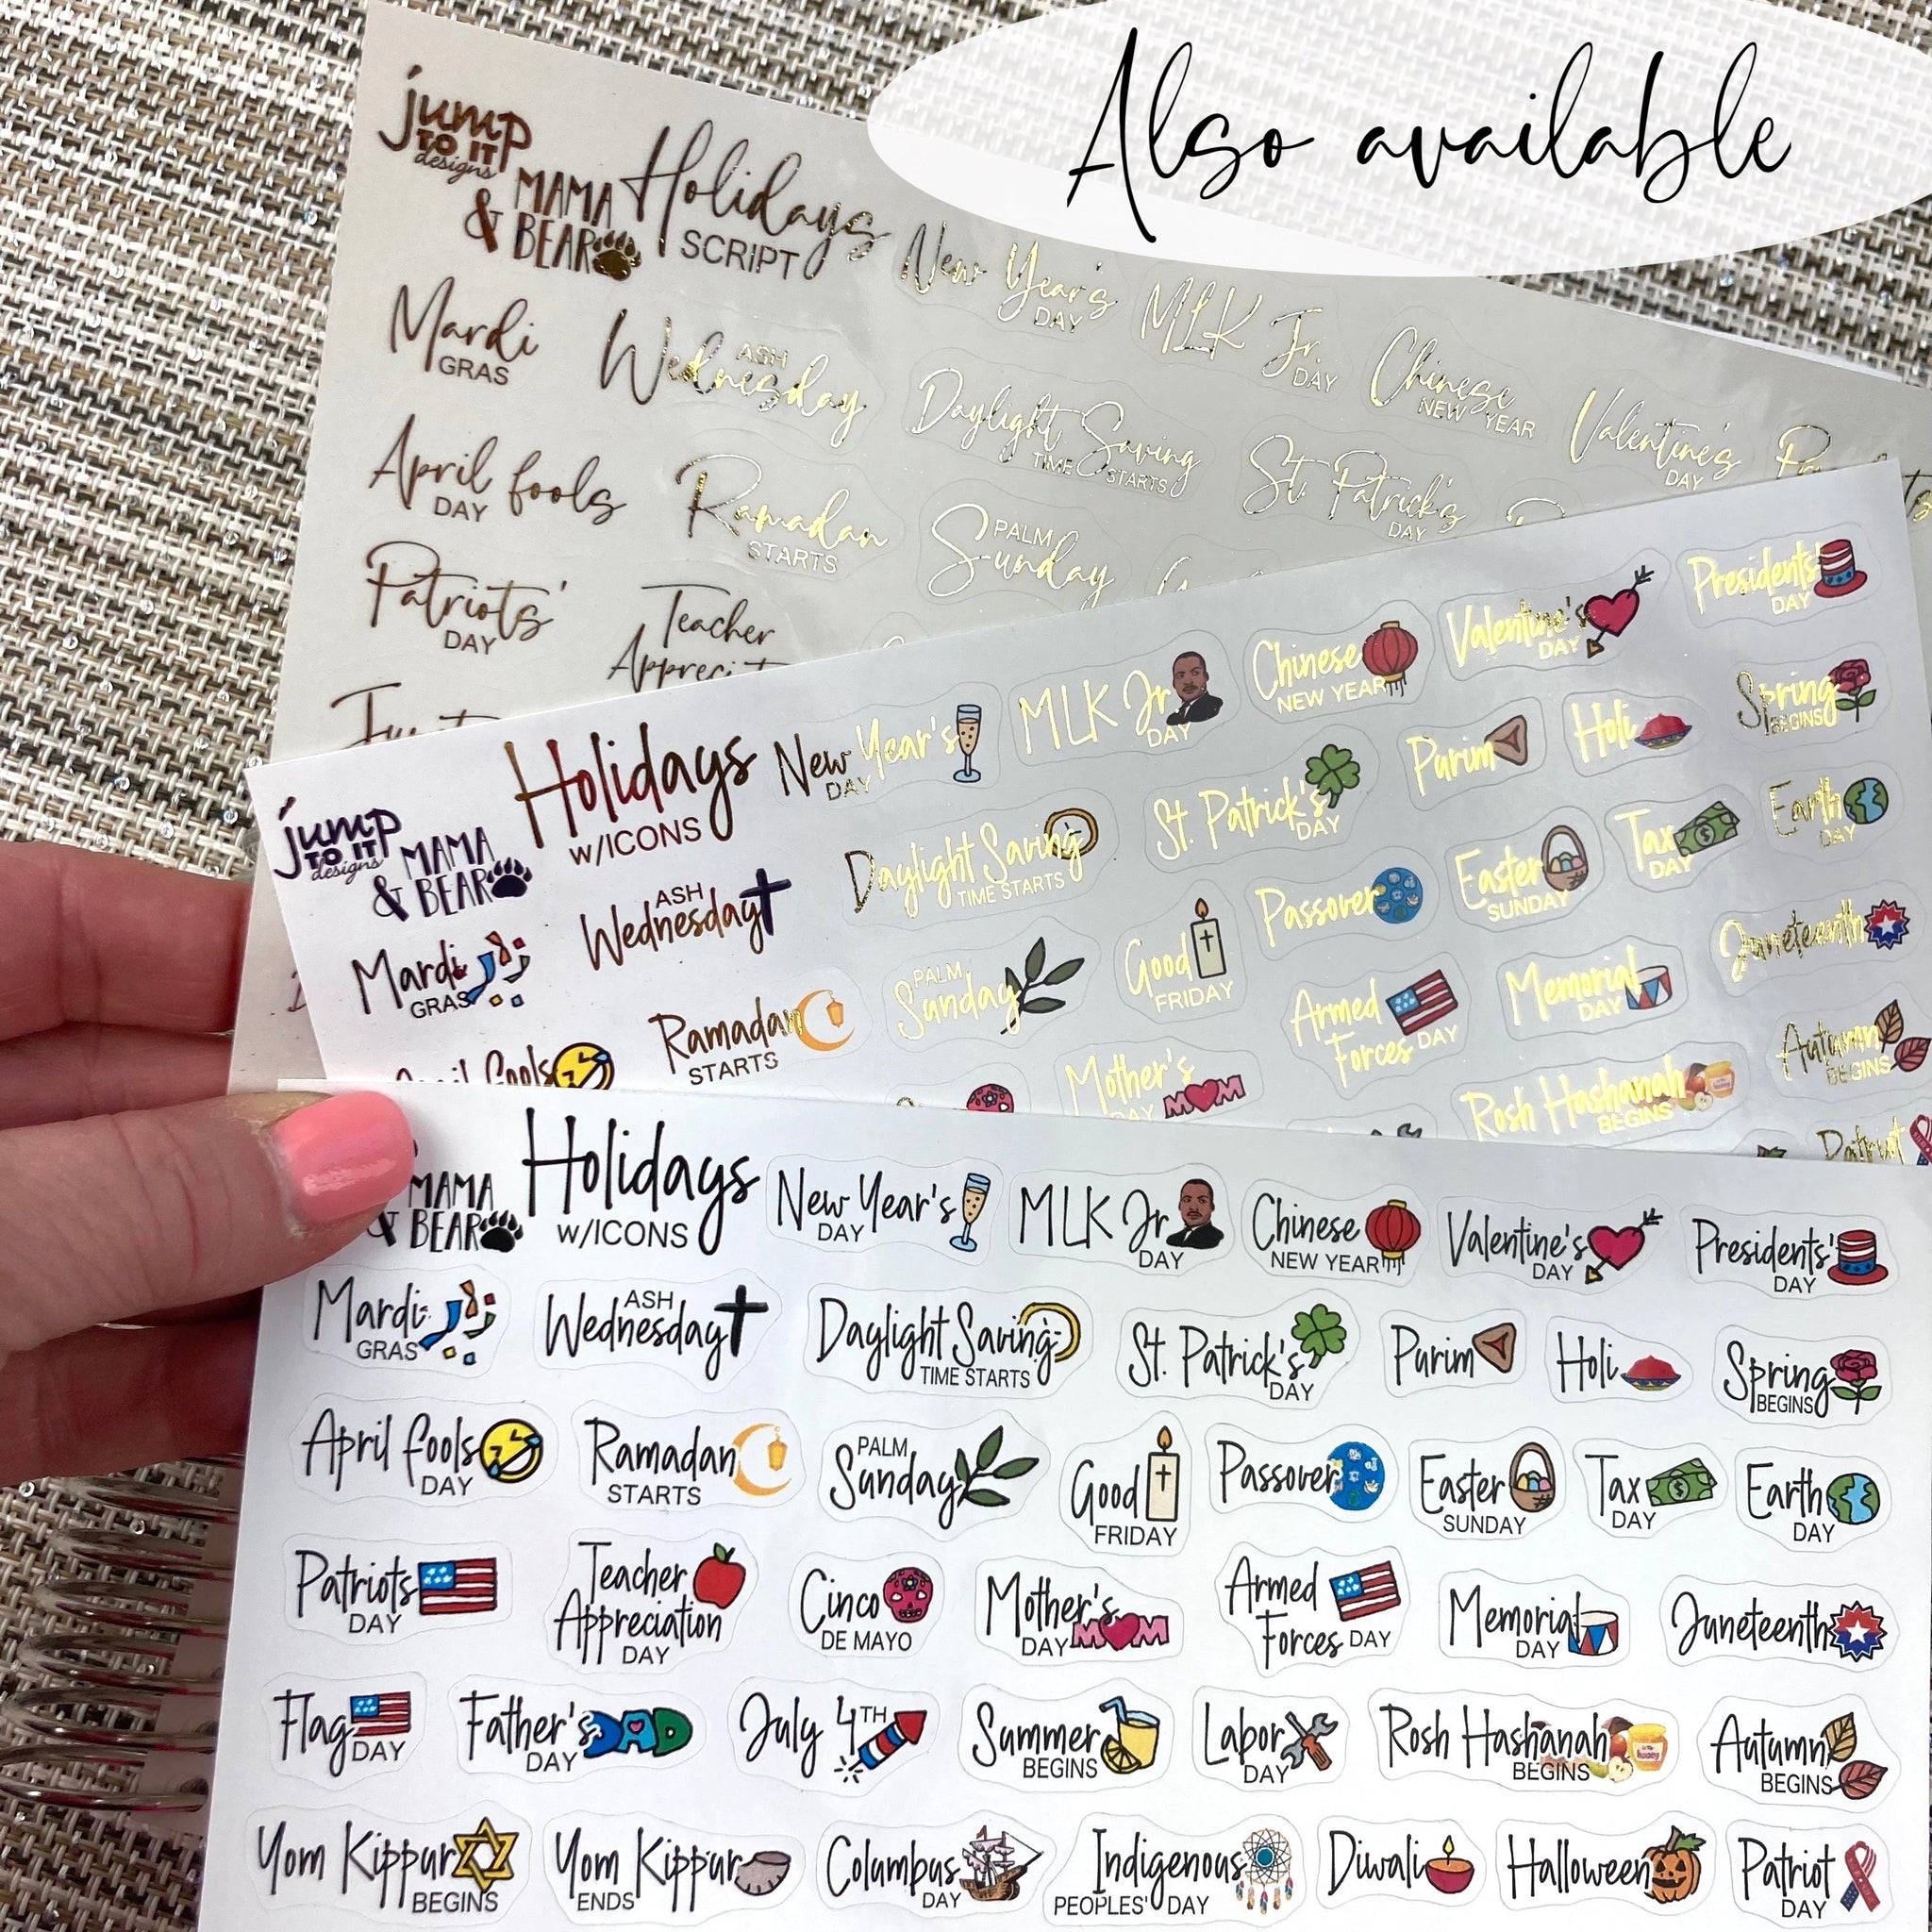 Also available
jump
TO IT
designs
MAMA
& BEAR
Holidays
SCRIPT
New Year's
DAY
MLK Jr.
DAY
Chinese
NEW YEAR
Valentine's
DAY
Mardi
GRAS
ASH
Wednesday
Daylight Saving
TIME STARTS
St. Patrick's
DAY
April fools
DAY
Ramadan
STARTS
PALM
Sunday
Patriots'
DAY
Teacher
jump
TO IT
designs
MAMA
& BEAR
Holidays
w/ICONS
New Year's
DAY
MLK Jr
DAY
Chinese
NEW YEAR
Valentine's
DAY
Presidents'
DAY
Mardi
GRAS
ASH
Wednesday
Daylight Saving
TIME STARTS
St. Patrick's
DAY
Purim
Holi
Spring
BEGINS
April fools
Ramadan
STARTS
PALM
Sunday
Good
FRIDAY
Passover
Easter
SUNDAY
Tax
DAY
Earth
DAY
Mother's
DAY MOM
Armed
Forces DAY
Memorial
DAY
Juneteenth
Rosh Hashanah
BEGINS
Autumn
BEGINS
Patriot
MAMA
& BEAR
Holidays
w/ICONS
New Year's
DAY
MLK Jr
DAY
Chinese
NEW YEAR
Valentine's
DAY
Presidents'
DAY
Mardi
GRAS
ASH
Wednesday
Daylight Saving
TIME STARTS
St. Patrick's
DAY
Purim
Holi
Spring
BEGINS
April fools
DAY
Ramadan
STARTS
PALM
Sunday
Good
FRIDAY
Passover
Easter
SUNDAY
Tax
DAY
Earth
DAY
Patriots
DAY
Teacher
Appreciation
DAY
Cinco
DE MAYO
Mother's
DAY MOM
Armed
Forces DAY
Memorial
DAY
Juneteenth
Flag
DAY
Father's
DAY DAD
July 4TH
Summer
BEGINS
Labor
DAY
Rosh Hashanah
BEGINS
Autumn
BEGINS
Yom Kippur
BEGINS
Yom Kippur
ENDS
Columbus
DAY
Indigenous
PEOPLES' DAY
Diwali
Halloween
Patriot
DAY